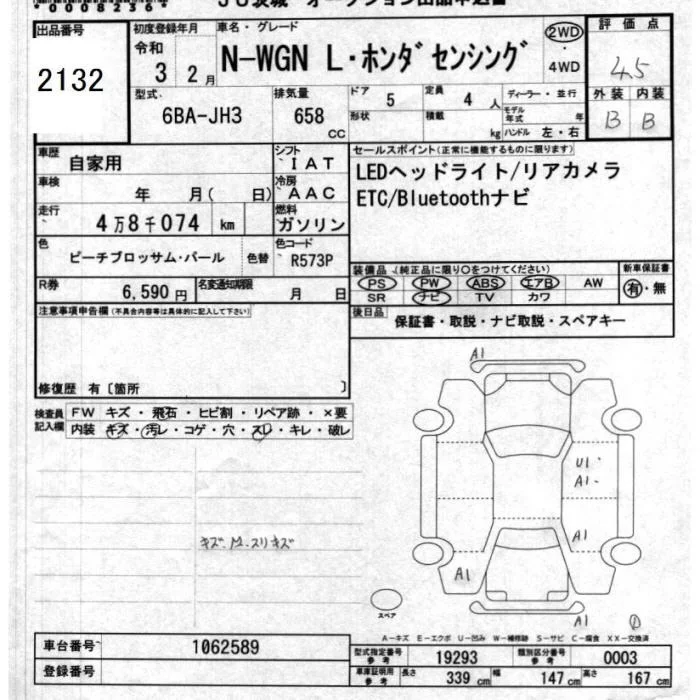 *0008236*
出品番号 初度登録年月 車名・グレード 2WD 評価点
2132 令和 3 2月 N-WGN L・ホンダセンシング ・ 4WD 4.5
型式 6BA-JH3 排気量 658 CC ドア 5 定員 4 人 ディーラー・並行 外装 内装
形状 積載 kg モデル年式 年 ハンドル 左・右 B B
車歴 自家用 シフト IAT セールスポイント(正常に機能するものに限ります)
車検 年 月( 日) 冷房 AAC LEDヘッドライト/リアカメラ
走行 4万8千074 km 燃料 ガソリン ETC/Bluetoothナビ
色 ピーチブロッサム・パール 色替 色コード R573P
装備品 (純正品に限り○をつけてください) 新車保証書
R券 6,590円 名変通知期限 月 日 PS PW ABS エアB AW 有・無
SR ナビ TV カワ
注意事項申告欄(不具合内容等は具体的に記入して下さい) 後日品 保証書・取説・ナビ取説・スペアキー
修復歴 有〔箇所 〕
検査員記入欄 FW キズ・飛石・ヒビ割・リペア跡・×要
内装 キズ・汚レ・コゲ・穴・スレ・キレ・破レ
A1
U1
A1
A1
A1
A1
スペア
A-キズ E-エクボ U-凹み W-補修跡 S-サビ C-腐食 XX-交換済
車台番号 1062589 型式指定番号 参考 19293 類別区分番号 参考 0003
登録番号 車庫証明用 参考 長さ 339 cm 幅 147 cm 高さ 167 cm